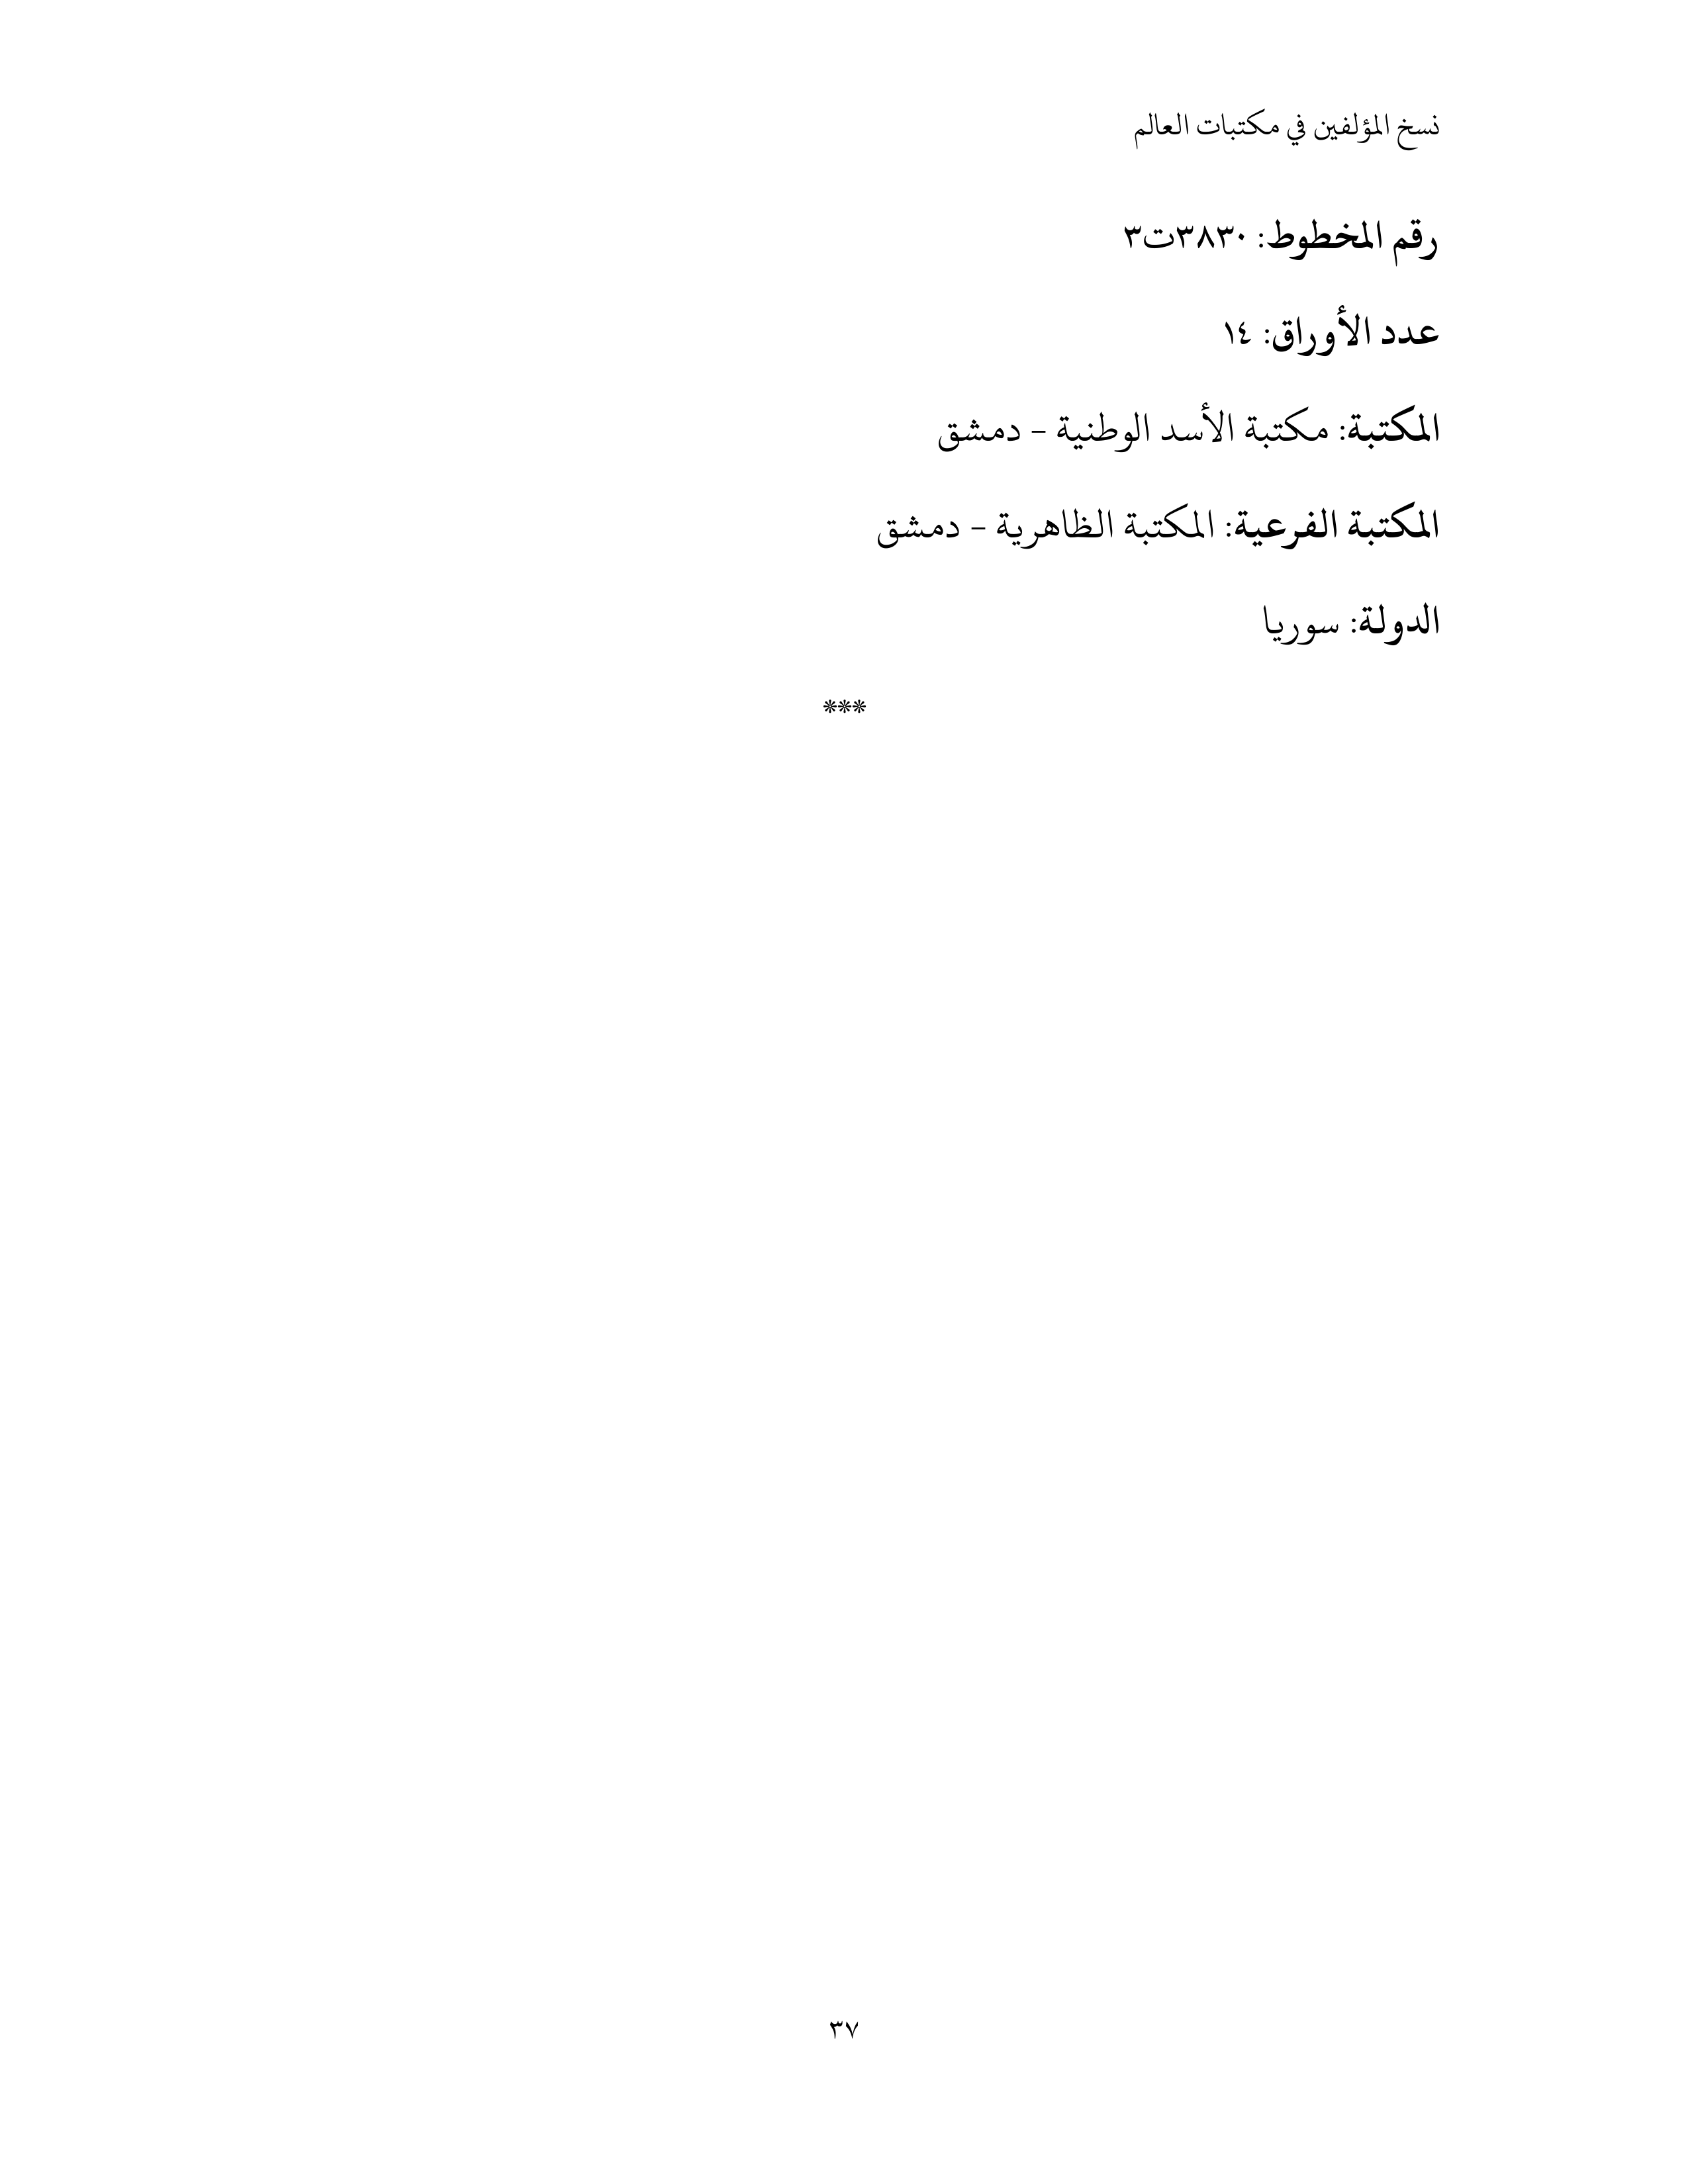 نسخ المؤلفين في مكتبات العالم
رقم المخطوط: ٣٨٣٠ت٣
عدد الأوراق: ١٤
المكتبة: مكتبة الأسد الوطنية - دمشق
المكتبة الفرعية: المكتبة الظاهرية - دمشق
الدولة: سوريا
***
٣٧